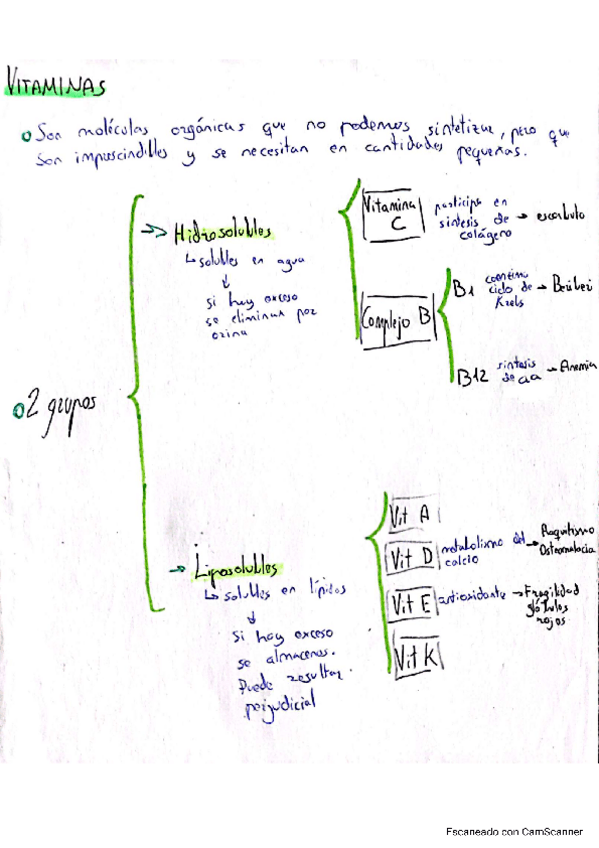 VITAMINAS
Son moléculas orgánicas que no podemos sintetizar, pero que
son imprescindibles y se necesitan en cantidades pequeñas.
2 grupos
Hidrosolubles
solubles en agua
si hay exceso
se eliminan por
orina
Vitamina
C
participa en
síntesis de
colágeno
escorbuto
Complejo B
B1
ciclo de
Krebs
Beriberi
B12
síntesis
de aa
Anemia
Liposolubles
solubles en lípidos
si hay exceso
se almacenan.
Puede resultar
perjudicial
Vit A
Vit D
metabolismo del
calcio
Raquitismo
Osteomalacia
Vit E
antioxidante
Fragilidad
glóbulos
rojos
Vit K
Escaneado con CamScanner